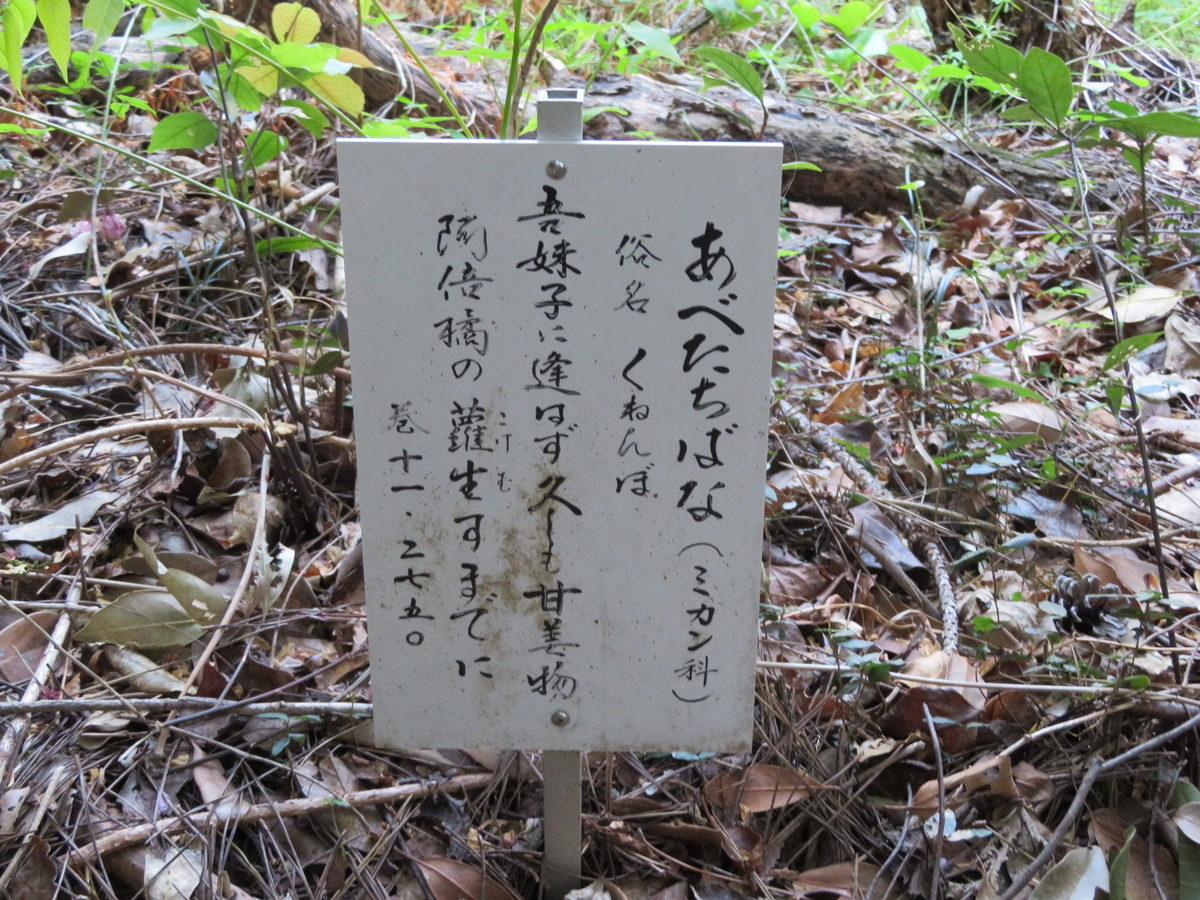 あべたちばな（ミカン科）
俗名 くねんぼ
吾妹子に逢はず久しも甘美物
阿倍橘の蘿生すまでに
こけむ
巻十一・二七五〇